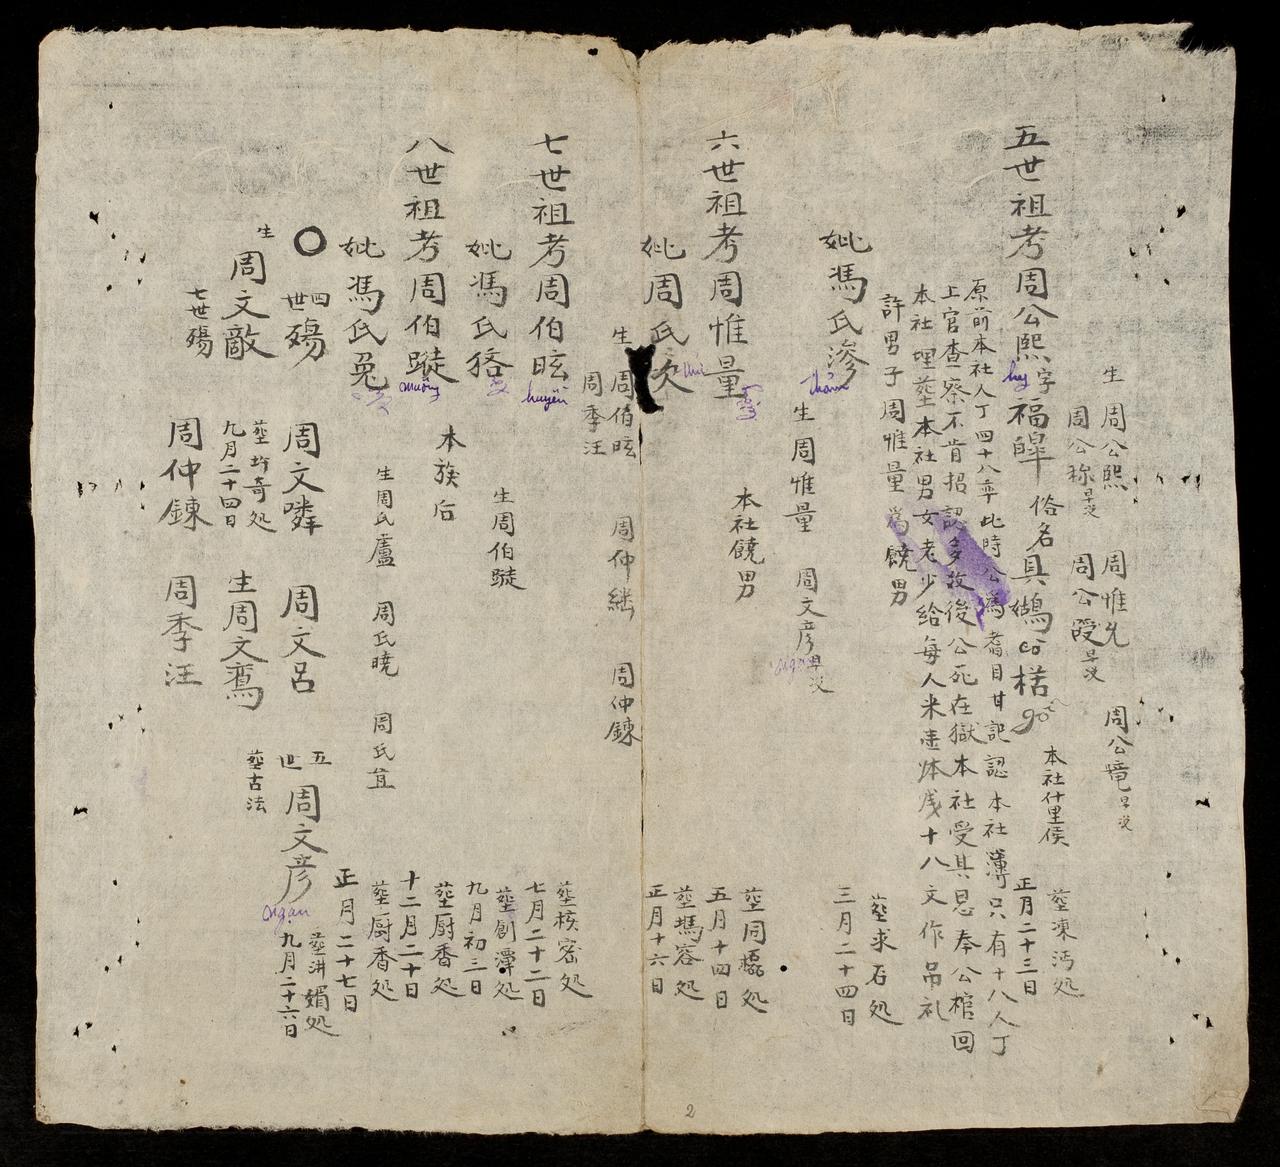 生 周公熙 周惟允 周公境早没
周公称早没 周公𤔡早没
五世祖考周公熙字福皡 俗名具鷀 本社什里侯 正月二十三日
hy có gỗ
塟凍沔処
原前本社人丁四十八率此時公為耆目甘記認本社簿只有十八人丁
上官查察不肯招認多故後公死在獄本社受其恩奉公棺回
本社埋塟本社男女老少给每人米壹体戋十八文作吊礼
許男子周惟量為饒男
妣馮氏滲 塟求石処
thảm 三月二十四日
生周惟量 周文彦早没
ngạn
六世祖考周惟量 本社饒男 塟同橅処
五月十四日
妣周氏次 塟瑪容処
thứ 正月十六日
生周伯昡 周仲繼 周仲鍊
周季汪
七世祖考周伯昡 塟核密処
huyễn 七月二十二日
妣馮氏狢 塟創潭処
九月初三日
生周伯蹤
八世祖考周伯蹤 本族后 塟厨香処
十二月二十日
妣馮氏兔 塟厨香処
正月二十七日
生周氏盧 周氏曉 周氏宜
〇 四世殤 周文暽 周文呂 五世周文彦 塟汫媚処
ngạn 九月二十六日
生周文敵 塟圻奇処 生周文鴌 塟古法
九月二十四日
七世殤 周仲鍊 周季汪
2